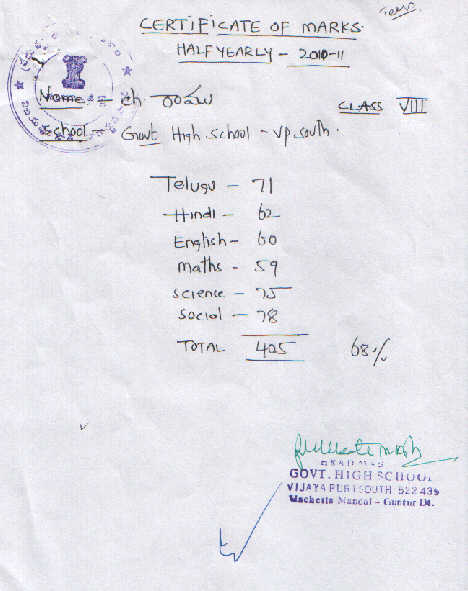 CERTIFICATE OF MARKS.
HALF YEARLY - 2010-11
Name - ch రాము
CLASS VIII
School - Govt High school - vp.south.
Telugu - 71
Hindi - 62
English - 60
maths - 59
science - 75
social - 78
TOTAL 405 68%
GOVT. HIGH SCHOOL
VIJAYAPURI SOUTH 522 439
Macherla Mandal - Guntur Dt.